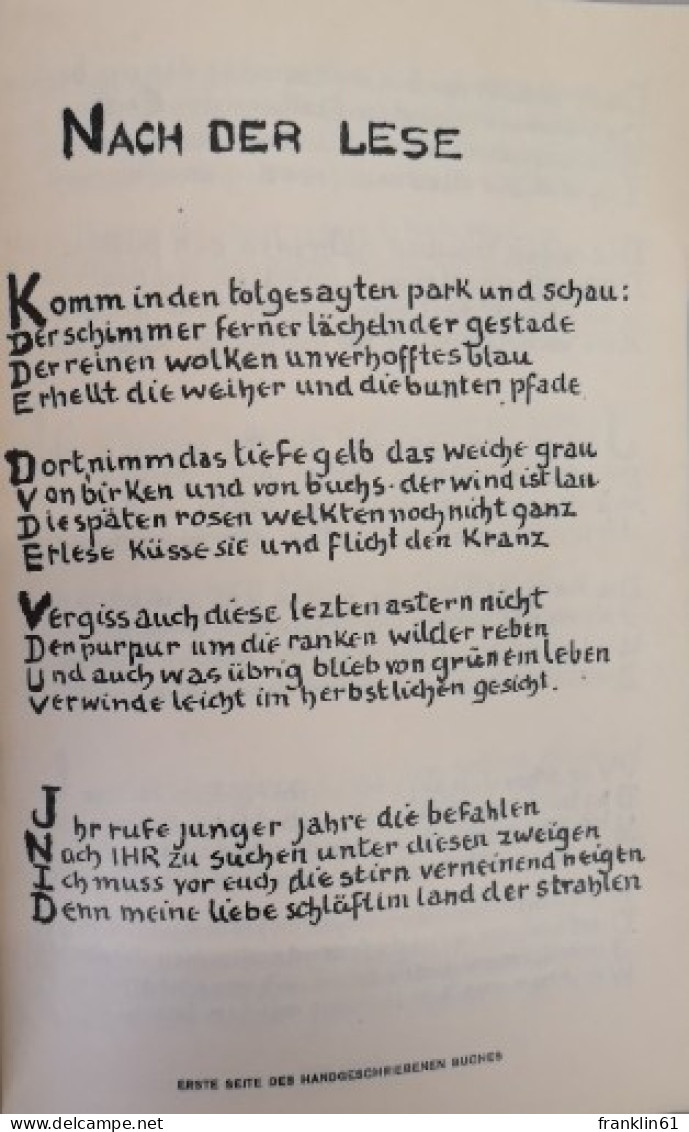 NACH DER LESE
Komm in den totgesagten park und schau:
Der schimmer ferner lächelnder gestade
Der reinen wolken unverhofftes blau
Erhellt die weiher und die bunten pfade
Dort nimm das tiefe gelb das weiche grau
Von birken und von buchs · der wind ist lau
Die späten rosen welkten noch nicht ganz
Erlese küsse sie und flicht den kranz
Vergiss auch diese lezten astern nicht
Den purpur um die ranken wilder reben
Und auch was übrig blieb von grünem leben
Verwinde leicht im herbstlichen gesicht.
Ihr rufe junger jahre die befahlen
Nach IHR zu suchen unter diesen zweigen
Ich muss vor euch die stirn verneinend neigen
Denn meine liebe schläft im land der strahlen
ERSTE SEITE DES HANDGESCHRIEBENEN BUCHES
www.delcampe.net
franklin61